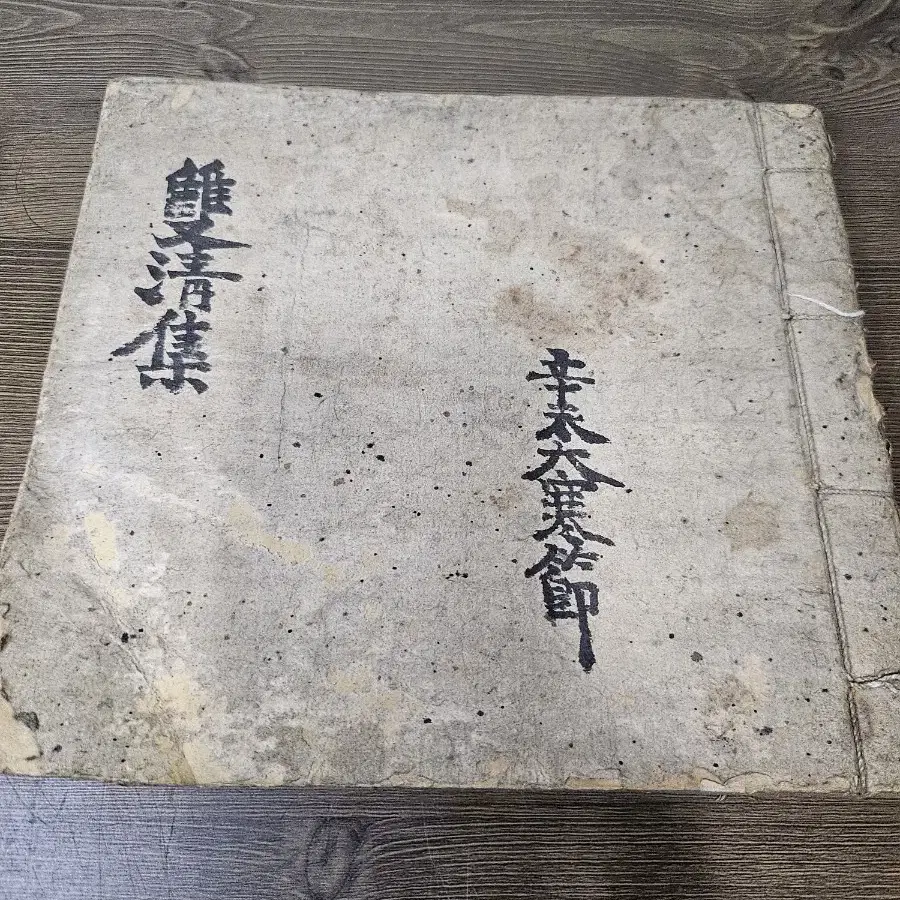 辛未大寒節
雙清集